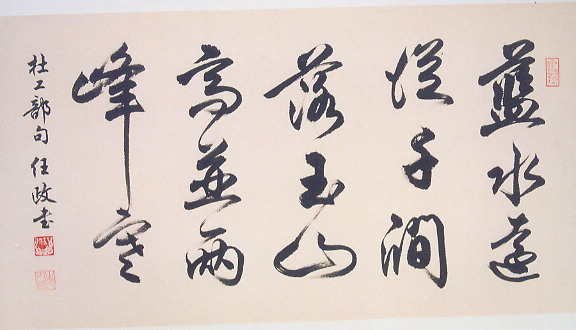 藍水遠
從千澗
落玉山
高並兩
峰寒
杜工部句 任政書